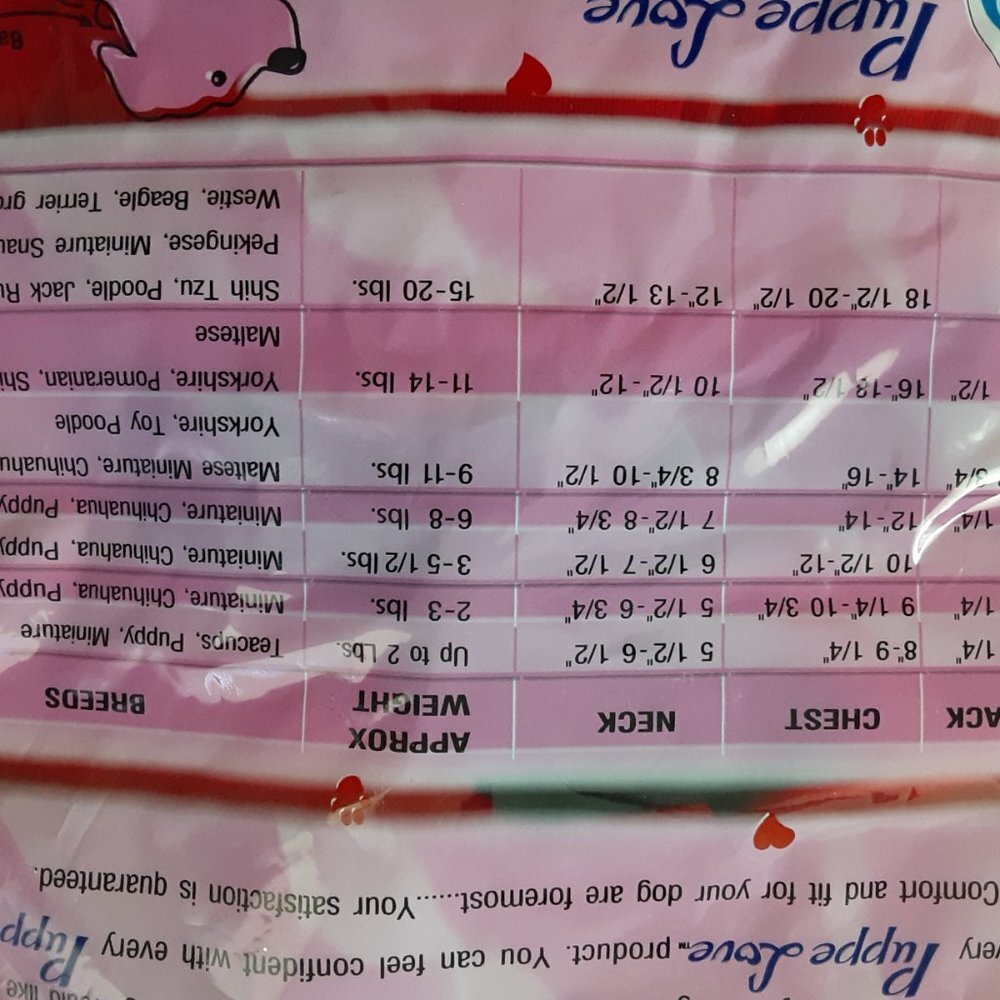 very Puppe Love™ product. You can feel confident with every Pupp
Comfort and fit for your dog are foremost......Your satisfaction is quaranteed.
ACK CHEST NECK APPROX WEIGHT BREEDS
1/4" 8"-9 1/4" 5 1/2"-6 1/2" Up to 2 Lbs. Teacups, Puppy, Miniature
1/4" 9 1/4"-10 3/4" 5 1/2"-6 3/4" 2-3 lbs. Miniature, Chihuahua, Puppy
10 1/2"-12" 6 1/2"-7 1/2" 3-5 1/2 lbs. Miniature, Chihuahua, Puppy
1/4" 12"-14" 7 1/2"-8 3/4" 6-8 lbs. Miniature, Chihuahua, Puppy
3/4" 14"-16" 8 3/4"-10 1/2" 9-11 lbs. Maltese Miniature, Chihuahu
Yorkshire, Toy Poodle
1/2" 16"-18 1/2" 10 1/2"-12" 11-14 lbs. Yorkshire, Pomeranian, Shi
Maltese
18 1/2"-20 1/2" 12"-13 1/2" 15-20 lbs. Shih Tzu, Poodle, Jack Ru
Pekingese, Miniature Snau
Westie, Beagle, Terrier gro
Puppe Love